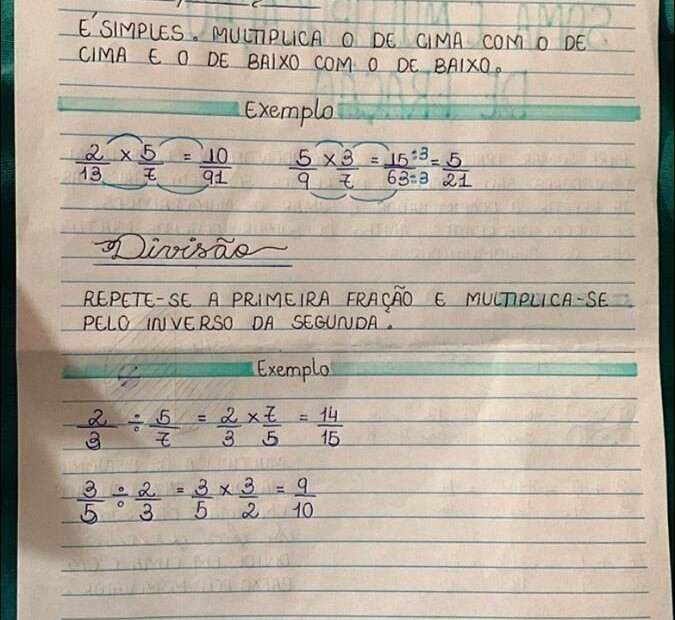 É SIMPLES. MULTIPLICA O DE CIMA COM O DE
CIMA E O DE BAIXO COM O DE BAIXO.
Exemplo
2/13 x 5/7 = 10/91 5/9 x 3/7 = 15:3/63:3 = 5/21
Divisão
REPETE-SE A PRIMEIRA FRAÇÃO E MULTIPLICA-SE
PELO INVERSO DA SEGUNDA.
Exemplo
2/3 ÷ 5/7 = 2/3 x 7/5 = 14/15
3/5 ÷ 2/3 = 3/5 x 3/2 = 9/10